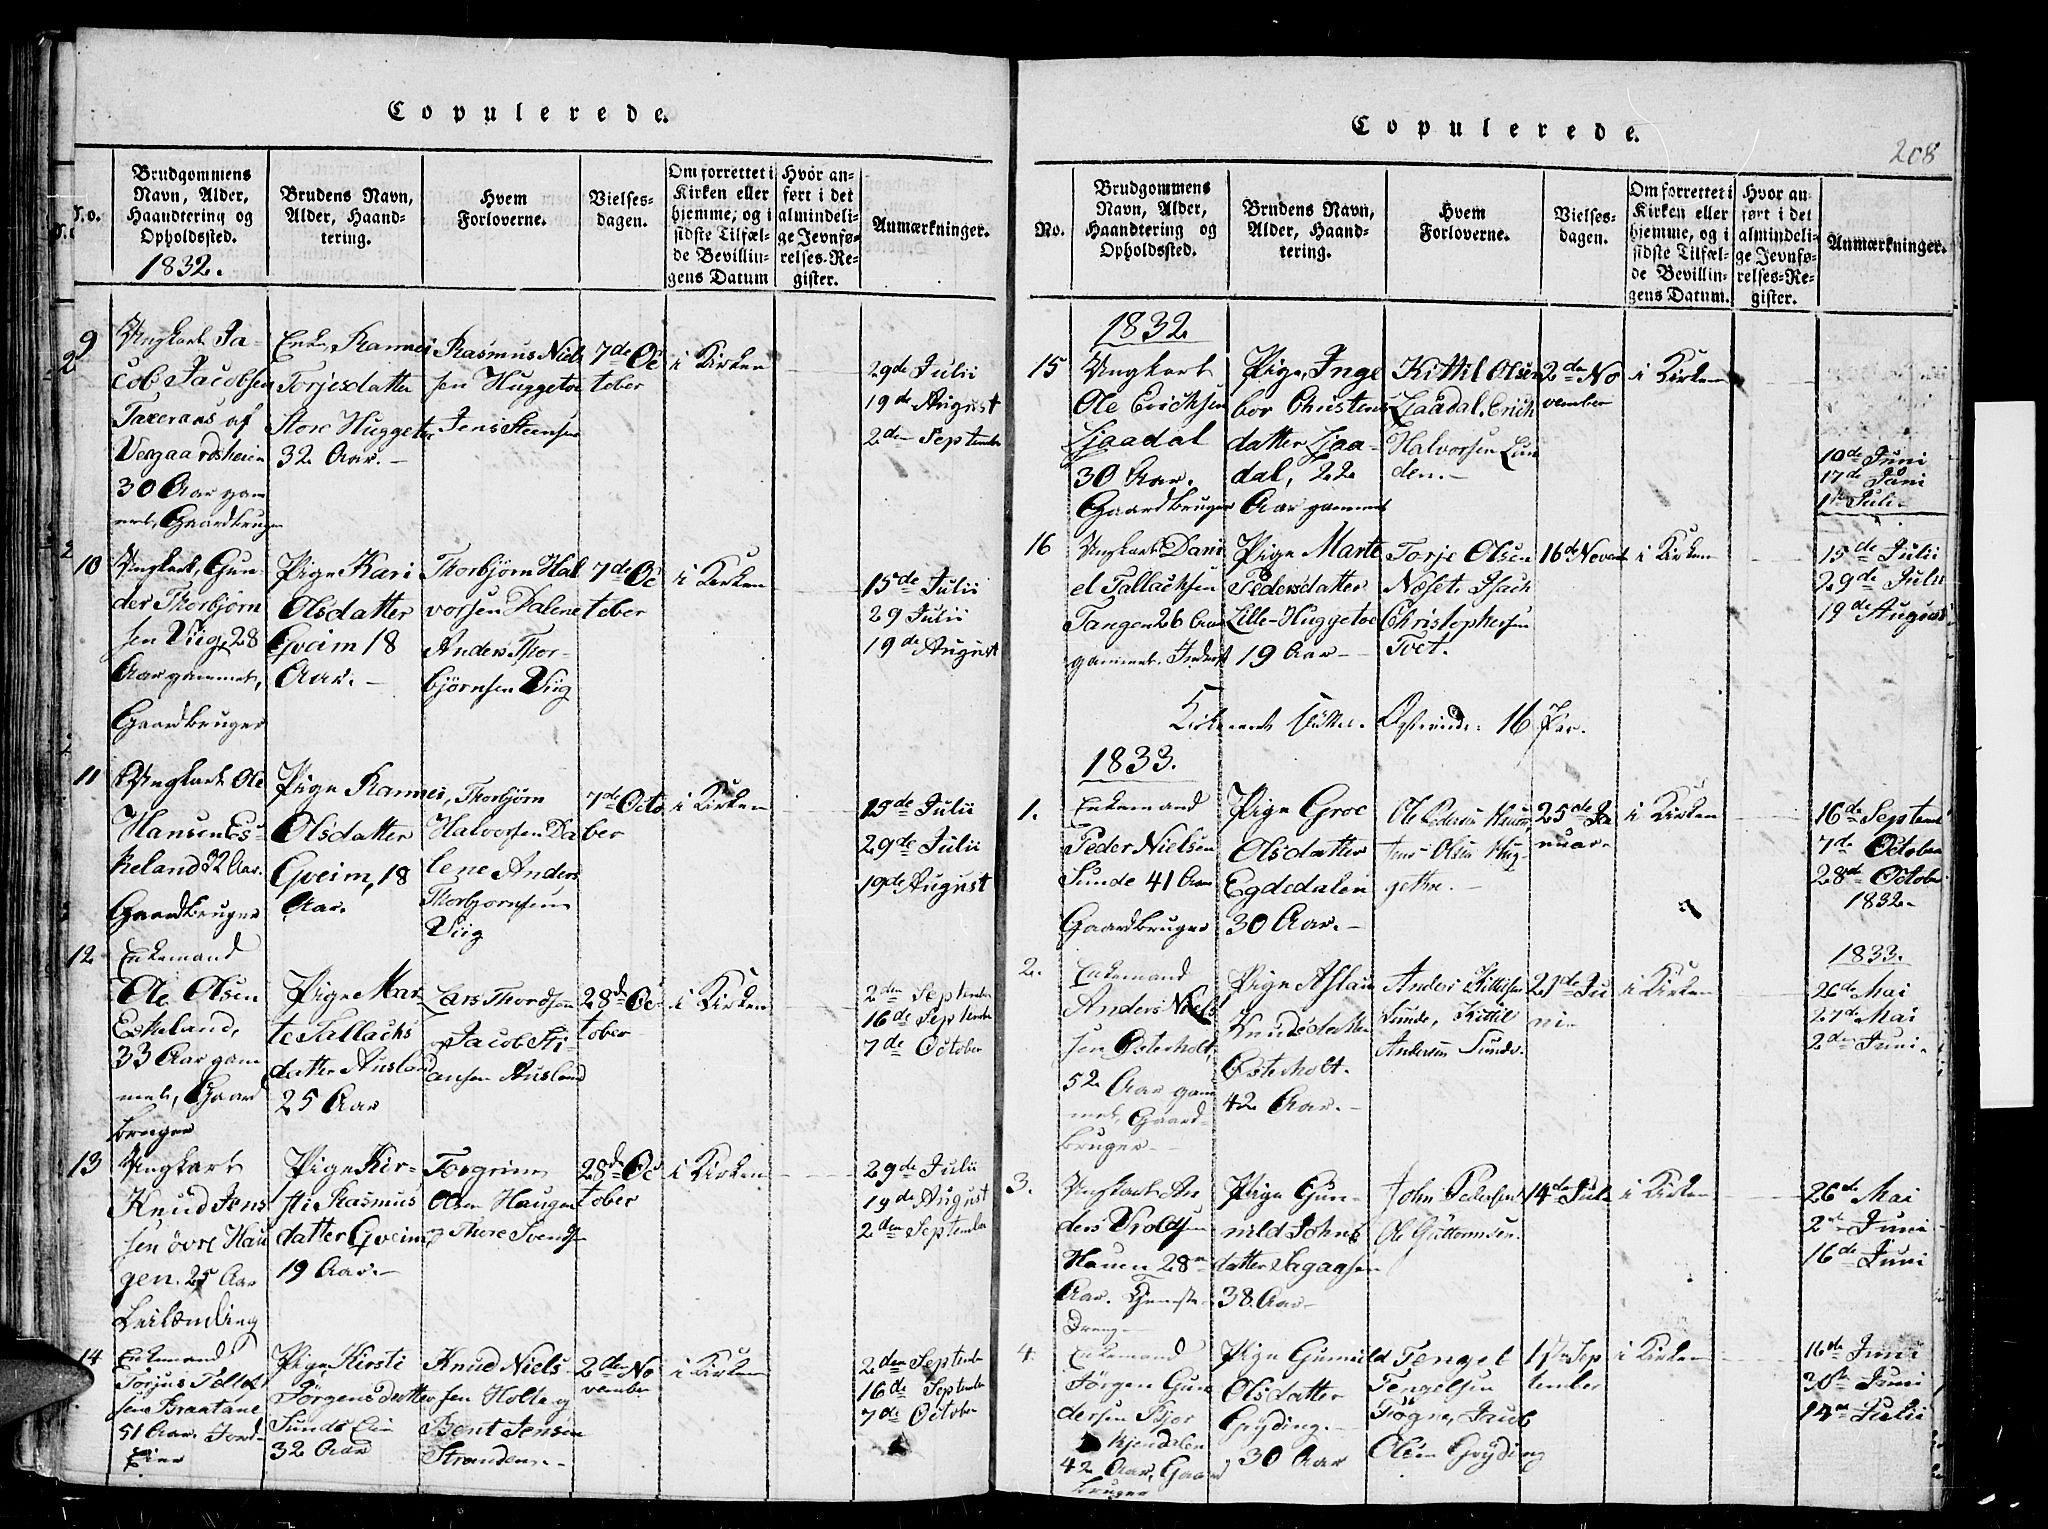 Copulerede.
No.
Brudgommens
Navn, Alder,
Haandtering og
Opholdssted.
1832.
Brudens Navn,
Alder, Haand-
tering.
Hvem
Forloverne.
Vielses-
dagen.
Om forrettet i
Kirken eller
hjemme, og i
sidste Tilfæl-
de Bevillin-
gens Datum
Hvor an-
ført i det
almindeli-
ge Jevnfø-
relses-Re-
gister.
Anmærkninger.
9
Ungkarl Ja-
cob Jacobsen
Taxerans af
Vegaardsheien
30 Aar gam
mel, Gaardbruger
Enke Kannei
Torjesdatter
Store Huggetoe
32 Aar.
Rasmus Niel
sen Huggetoe
Jens Steensen
7de Oc
tober
i Kirken
29de Julii
19de August
2den September
10
Ungkarl, Gun-
der Thorbjørn
sen Viig, 28
Aar gammel,
Gaardbruger
Pige Kari
Olsdatter
Gveim 18
Aar.
Thorbjørn Hal
vorsen Dalene
Anders Thor-
bjørnsen Viig
7de Oc
tober
i Kirken
15de Julii
29 Julii
19de August
11
Ungkarl Ole
Hansen Es-
keland 32 Aar.
Gaardbruger
Pige Kannei,
Olsdatter
Gveim, 18
Aar.
Thorbjørn
Halvorsen Da
lene Anders
Thorbjornsen
Viig
7de Octo
ber
i Kirken
15de Julii
29de Julii
19de August
12
Enkemand
Ole Olsen
Eskeland,
33 Aar gam
mel, Gaard
bruger
Pige Mar
te Tallacks
datter Ausland
25 Aar
Lars Thordsen
og Jacob Sti-
ansen Ausland
28de Oc
tober
i Kirken
2den September
16de September
7de October
13
Ungkarl
Knud Jens
sen övre Hau
gen. 25 Aar
Leilænding
Pige Kir-
sti Rasmus
datter Gveim
19 Aar.
Torgrim
Olsen Haugen
og Thore Svends
28de Oc
tober
i Kirken
29de Julii
19de August
2den September
14
Enkemand
Torjus Tellef
sen Braatane
51 Aar. Jord-
Eier
Pige Kirsti
Jörgensdatter
Sunds Eie
32 Aar
Knud Niels
sen Holte og
Bent Jensen
Stranden.
2den No
vember
i Kirken
2den September
16de September
7de October
Copulerede.
208
No.
Brudgommens
Navn, Alder,
Haandtering og
Opholdssted.
Brudens Navn,
Alder, Haand-
tering.
Hvem
Forloverne.
Vielses-
dagen.
Om forrettet i
Kirken eller
hjemme, og i
sidste Tilfæl-
de Bevillin-
gens Datum.
Hvor an-
ført i det
almindeli-
ge Jevnfø-
relses-Re-
gister.
Anmærkninger.
1832
15
Ungkarl
Ole Ericksen
Ljaadal
30 Aar.
Gaardbruger
Pige, Inge
bor Christens
datter Ljaa-
dal, 22
Aar gammel
Kittil Olsen
Ljaadal, Erich
Halvorsen Lun
den.
2den No
vember
i Kirken
10de Juni
17de Juni
1ste Juli
16
Ungkarl Dani
el Tallacksen
Tangen 26 Aar
gammel. Inderst
Pige Marte
Pedersdatter
Lille-Huggetoe
19 Aar
Torje Olsen
Næset. Isach
Christophersen
Tvet.
16de Novemb
i Kirken
15de Julii
29de Julii
19de August
16 Par.
1833.
1.
Enkemand
Peder Nielsen
Sunde 41 Aar
Gaardbruger
Pige Groe
Olsdatter
Egdedalen
30 Aar.
25de Ja
nuar
i Kirken
16de Septemb
7de October
28de October
1832
2.
Enkemand
Anders Niels
sen Østerholt,
52 Aar gam
mel, Gaard-
bruger
Pige Aslau
Knudsdatter
Østerholt.
42 Aar.
Anders Kittilsen
Sunde, Kittil
Andersen Sunde.
23de Ju
ni
i Kirken
1833.
26de Mai
27de Mai
2den Juni
3.
Ungkarl An
ders Uroldsen
28
Aar. Tjeneste-
Dreng
Pige Gun-
nild Johns
datter
38 Aar
John Pedersen
Ole Guttormsen
14de Juli
i Kirken
26de Mai
2den Juni
16de Juni
4.
Enkemand
Jörgen Gun
dersen Bjor
kjendalen
42 Aar, Gaard
bruger
Pige Gunnild
Olsdatter
Gryting.
30 Aar
Tengel
Tengelsen
Olsen Gryting
17de Sep
tember
i Kirken
16de Juni
30te Juni
14de Julii